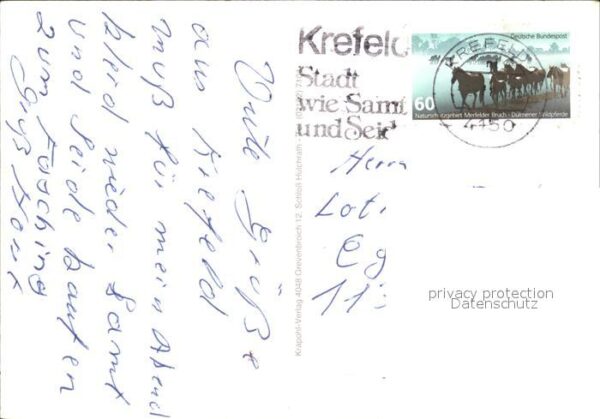 Viele Grüße
aus Krefeld
muß für mein Abend
kleid wieder Samt
und Seide kaufen
zum Fasching
Gruß
Krapohl-Verlag 4048 Grevenbroich 12, Schloß Hülchrath
Krefeld
Stadt
wie Samt
und Seide
Deutsche Bundespost
60
Naturschutzgebiet Merfelder Bruch - Dülmener Wildpferde
KREFELD
4150
Herrn
Lot
Eg
11
privacy protection
Datenschutz